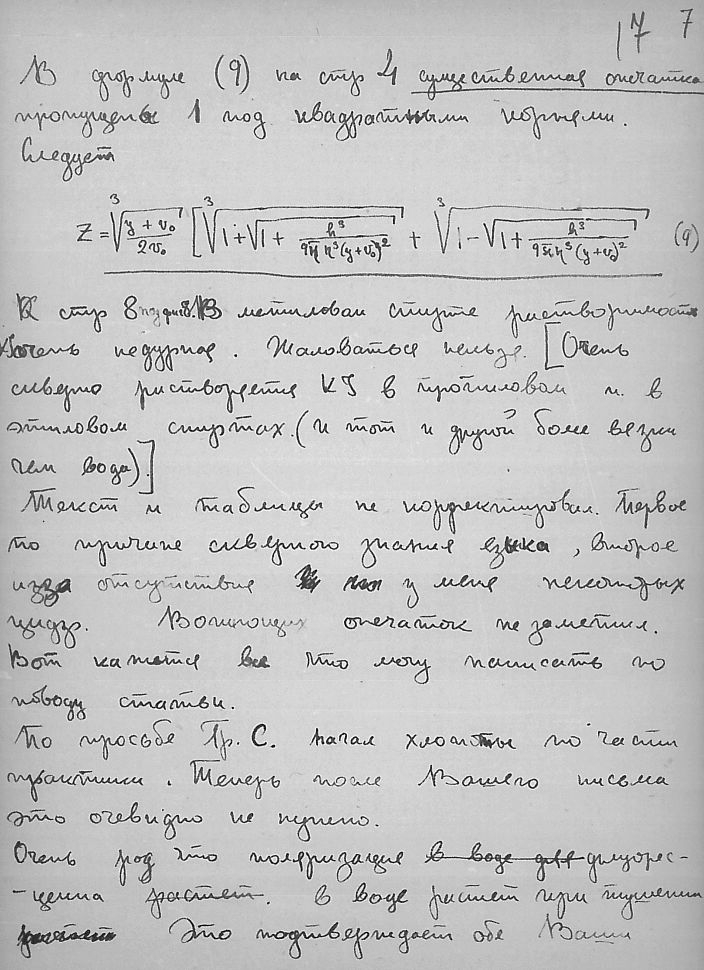 17 7
В формуле (9) на стр 4 существенная опечатка
пропущена 1 под квадратными корнями.
Следует
Z = ∛((y + v₀)/(2v₀)) [∛(1 + √(1 + h³/(9π η³(y+v₀)²))) + ∛(1 − √(1 + h³/(9π η³(y+v₀)²))) (9)
К стр 8 В метиловом спирте растворимость
очень недурная. Жаловаться нельзя. [Очень
скверно растворяется KJ в пропиловом и в
этиловом спиртах. (и тот и другой более вязки
чем вода).]
Текст и таблицы не корректировал. Первое
по причине скверного знания языка, второе
из за отсутствия у меня некоторых
цифр. Вопиющих опечаток не заметил.
Вот кажется все что могу написать по
поводу статьи.
По просьбе Гр. С. начал хлопоты по части
практики. Теперь после Вашего письма
это очевидно не нужно.
Очень рад что поляризация в воде флуорес-
-ценции растет. в воде растет при тушении
Это подтверждает обе Ваши